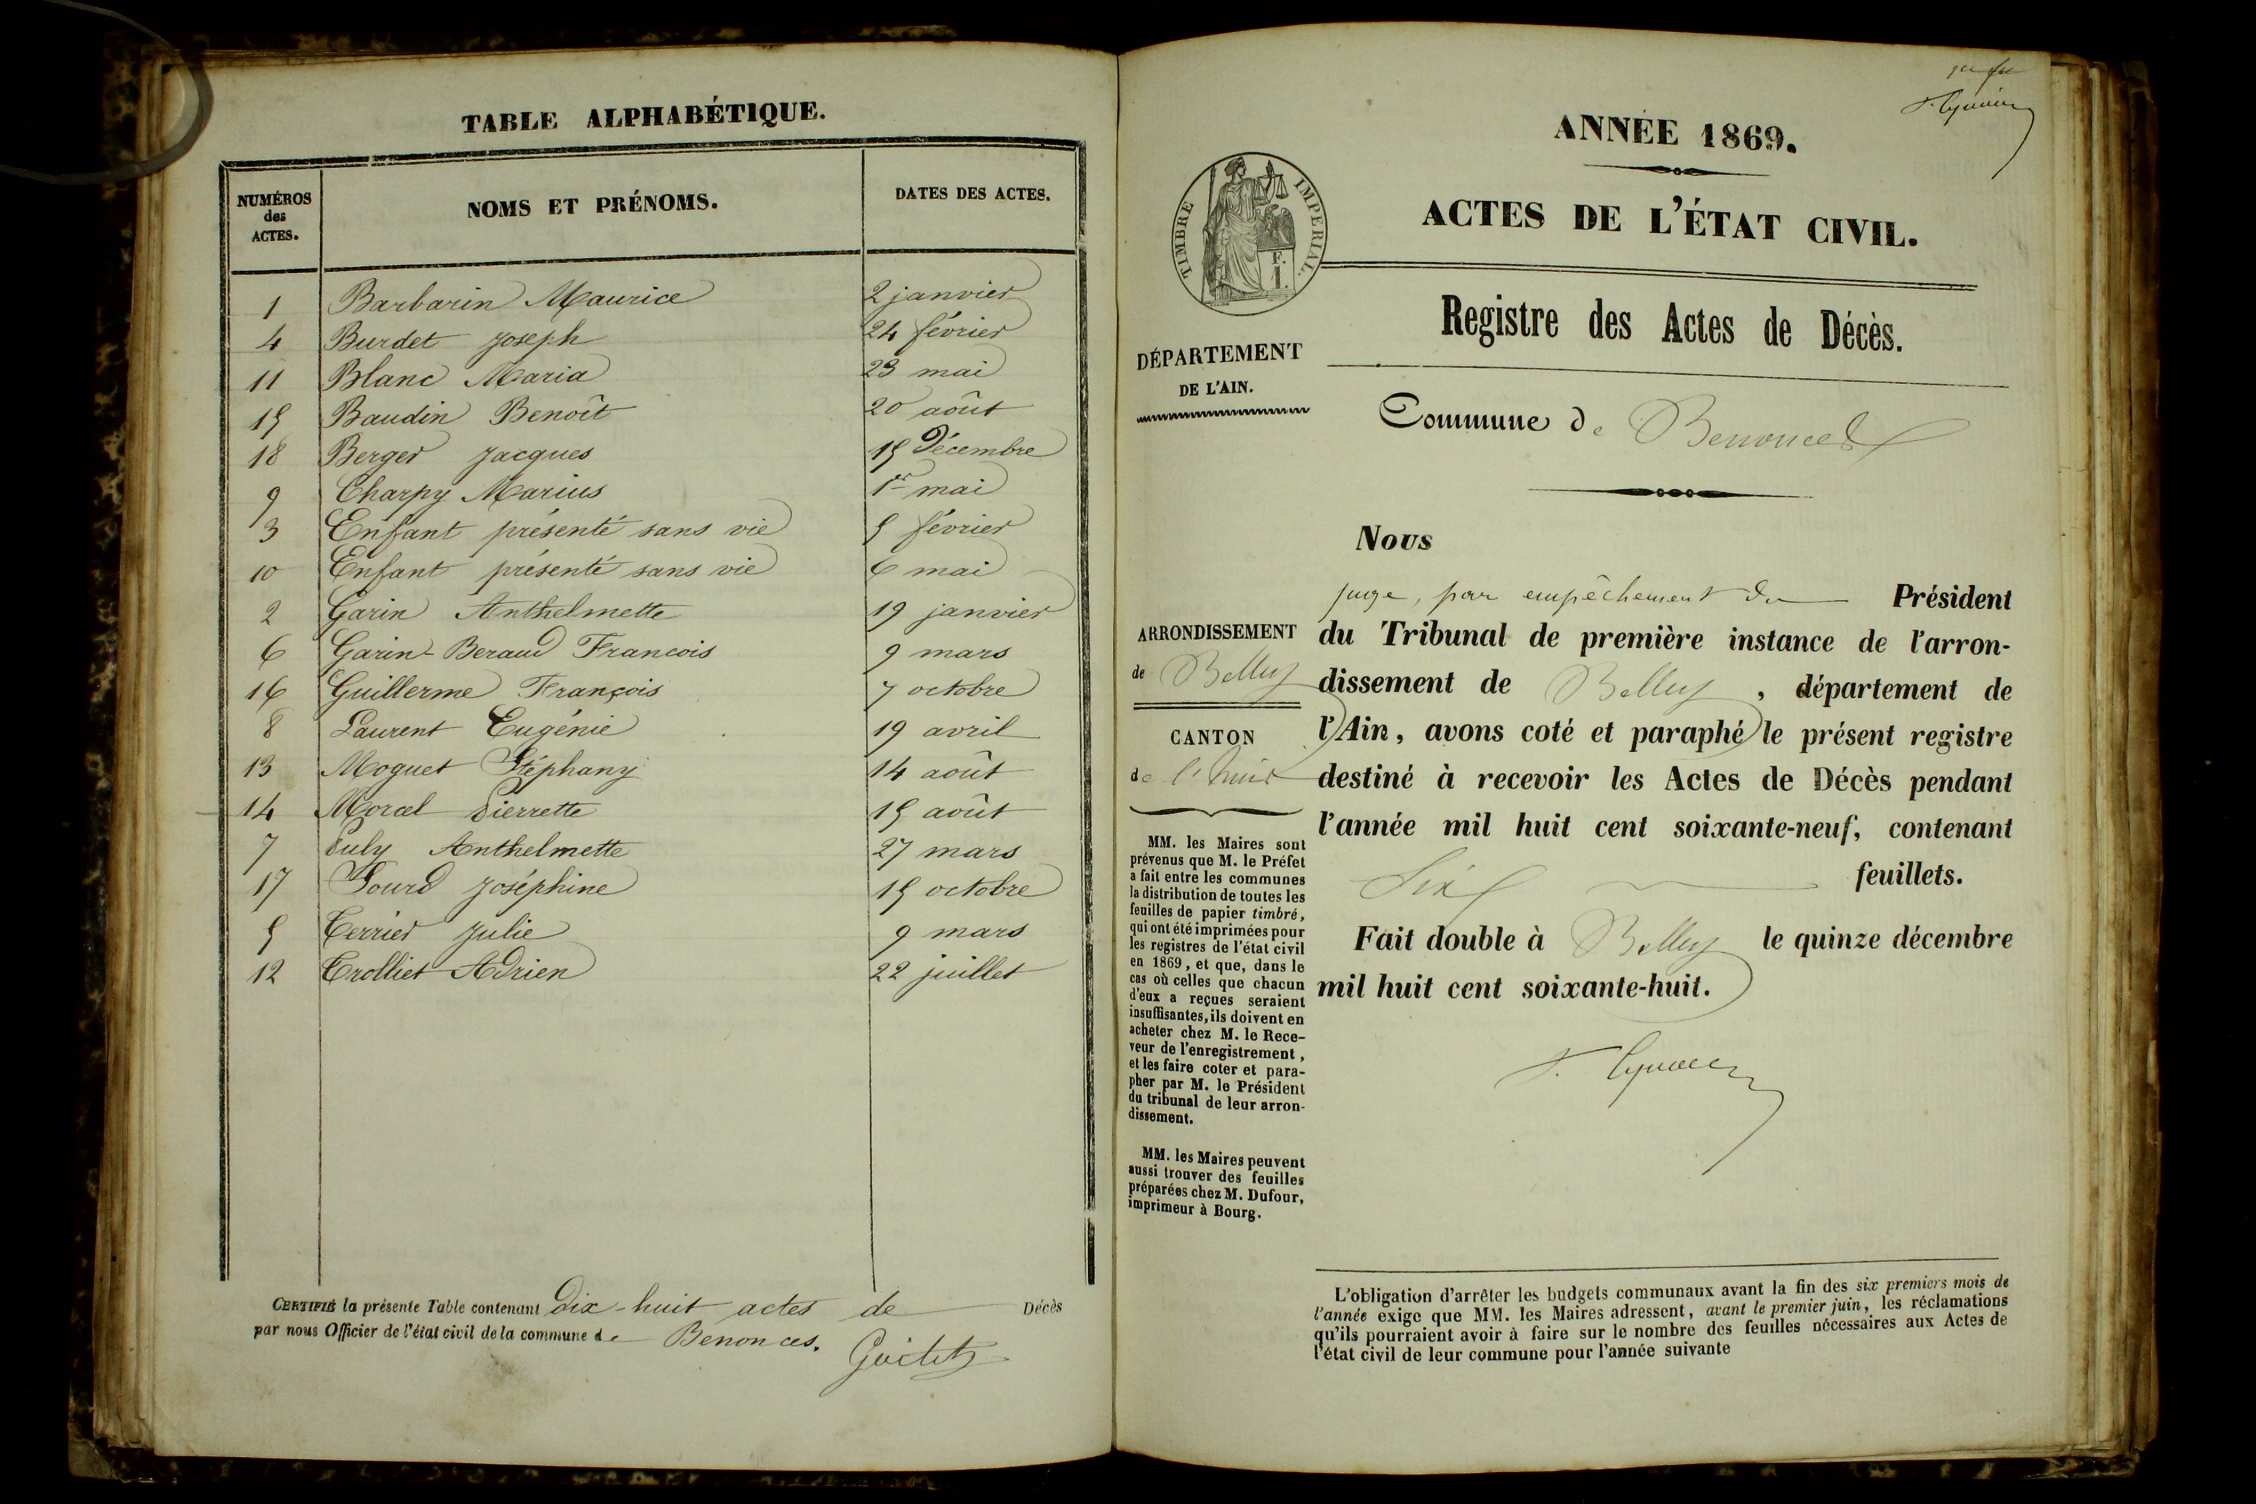 TABLE ALPHABÉTIQUE.
NUMÉROS des ACTES. NOMS ET PRÉNOMS. DATES DES ACTES.
1 Barbarin Maurice 2 janvier
4 Burdet Joseph 24 février
11 Blanc Maria 23 mai
15 Baudin Benoît 20 août
18 Berger Jacques 15 Décembre
9 Charpy Marius 1er mai
3 Enfant présenté sans vie 5 février
10 Enfant présenté sans vie 6 mai
2 Garin Anthelmette 19 janvier
6 Garin-Beraud Francois 9 mars
16 Guillerme François 7 octobre
8 Laurent Eugénie 19 avril
13 Moguet Stéphany 14 août
14 Morcel Pierrette 15 août
7 Puly Anthelmette 27 mars
17 Sourd Joséphine 15 octobre
5 Terrier Julie 9 mars
12 Trolliet Adrien 22 juillet
CERTIFIÉ la présente Table contenant Dix-huit actes de Décès
par nous Officier de l'état civil de la commune de Benonces.
ANNÉE 1869.
ACTES DE L'ÉTAT CIVIL.
TIMBRE IMPÉRIAL.
F.
1.
Registre des Actes de Décès.
DÉPARTEMENT
DE L'AIN.
Commune de Benonces
ARRONDISSEMENT
de Belley
CANTON
de l'huis
MM. les Maires sont
prévenus que M. le Préfet
a fait entre les communes
la distribution de toutes les
feuilles de papier timbré,
qui ont été imprimées pour
les registres de l'état civil
en 1869, et que, dans le
cas où celles que chacun
d'eux a reçues seraient
insuffisantes, ils doivent en
acheter chez M. le Rece-
veur de l'enregistrement,
et les faire coter et para-
pher par M. le Président
du tribunal de leur arron-
dissement.
MM. les Maires peuvent
aussi trouver des feuilles
préparées chez M. Dufour,
imprimeur à Bourg.
Nous
juge, par empêchement du Président
du Tribunal de première instance de l'arron-
dissement de Belley, département de
l'Ain, avons coté et paraphé le présent registre
destiné à recevoir les Actes de Décès pendant
l'année mil huit cent soixante-neuf, contenant
Six feuillets.
Fait double à Belley le quinze décembre
mil huit cent soixante-huit.
L'obligation d'arrêter les budgets communaux avant la fin des six premiers mois de
l'année exige que MM. les Maires adressent, avant le premier juin, les réclamations
qu'ils pourraient avoir à faire sur le nombre des feuilles nécessaires aux Actes de
l'état civil de leur commune pour l'année suivante